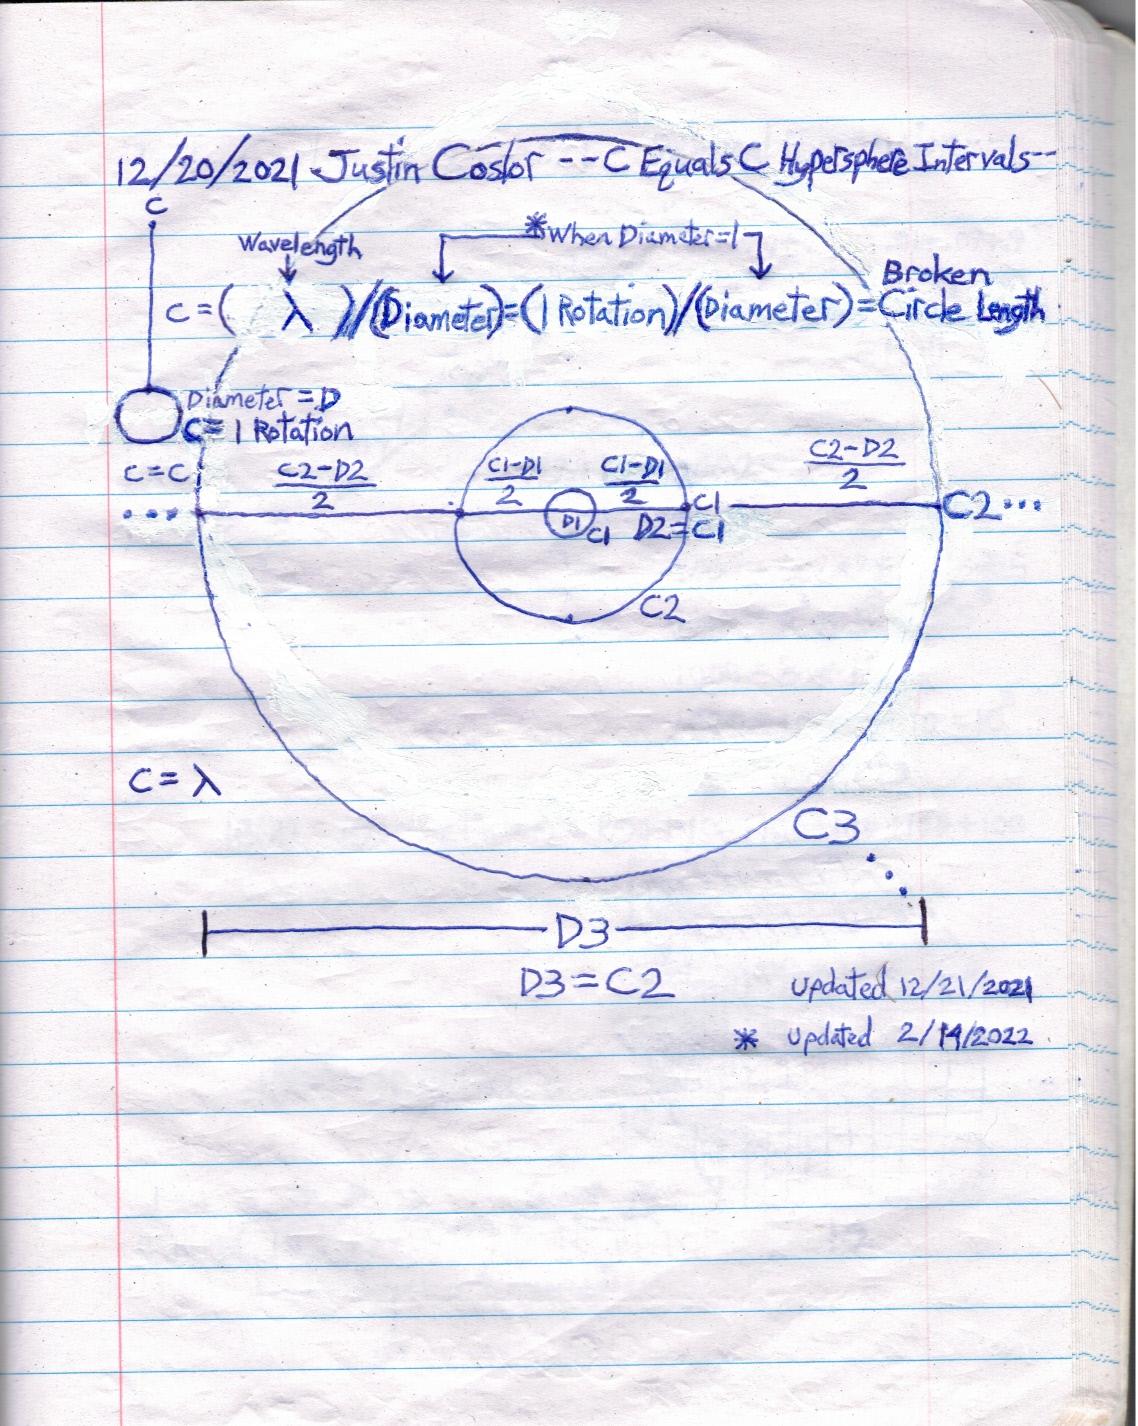 12/20/2021 Justin Coslor -- C Equals C Hypersphere Intervals--
C
Wavelength
*When Diameter=1
Broken
C=( λ )/(Diameter)=(1 Rotation)/(Diameter)=Circle Length
Diameter = D
C= 1 Rotation
C=C
C2-D2
2
C1-D1
2
C1-D1
2
C2-D2
2
...
D1
C1
C1
D2=C1
C2...
C2
C=λ
C3
...
D3
D3=C2
Updated 12/21/2021
* Updated 2/14/2022